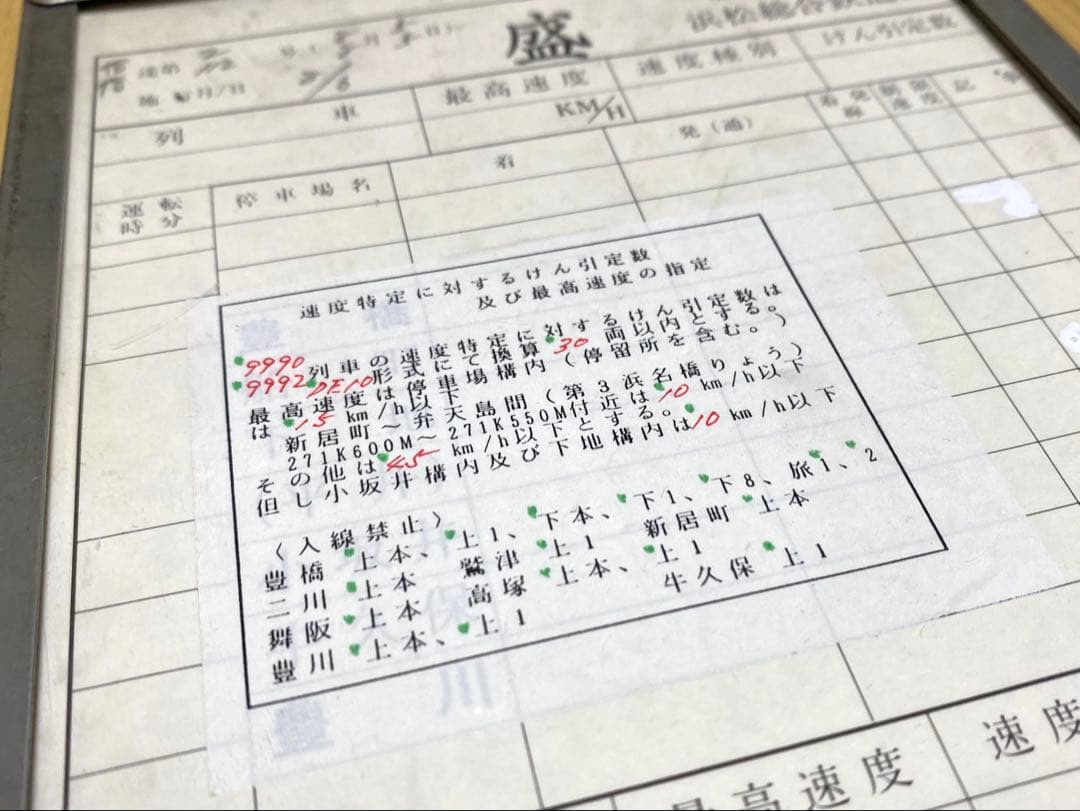 盛
達第
列 車
最高速度
KM/H
速度種別
けん引定数
運転時分
停車場名
着
発(通)
着発線
制限速度
記 事
速度特定に対するけん引定数
及び最高速度の指定
9990
9992列車の速度特定に対するけん引定数は
DE10形式にて換算30両以内とする。
最高速度は停車場構内(停留所を含む。)
は15km/h以下
新居町〜弁天島間(第3浜名橋りょう)
271K600M〜271K550M付近は10km/h以下
その他は45km/h以下とする。
但し小坂井構内及び下地構内は10km/h以下
〈入線禁止〉
豊橋 上本、上1、下本、下1、下8、旅1、2
二川 上本 鷲津 上1 新居町 上本
舞阪 上本 高塚 上本、上1
豊川 上本、上1 牛久保 上1
最高速度
速度